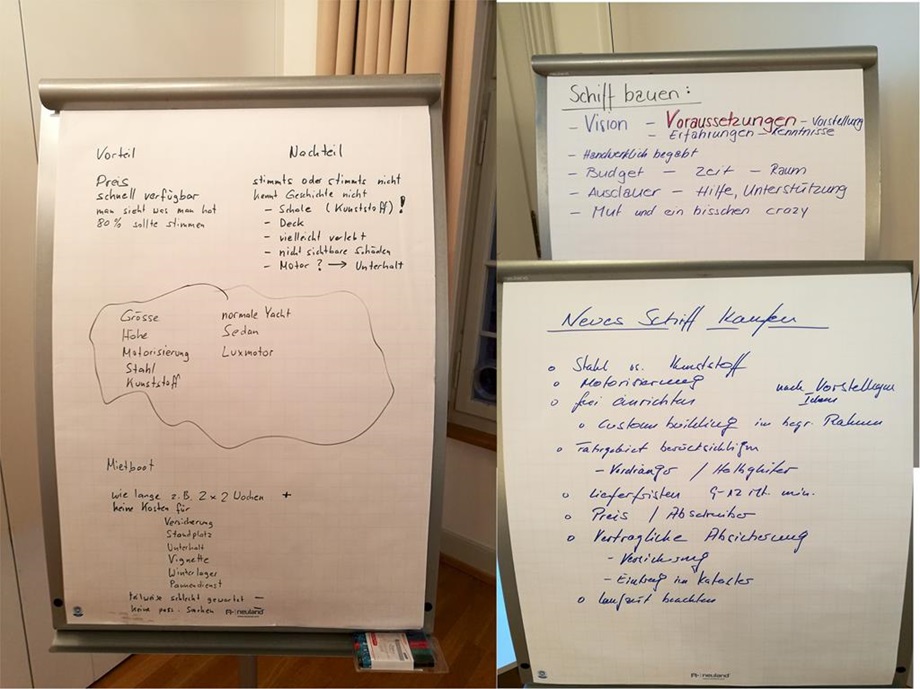 Vorteil
Preis
schnell verfügbar
man sieht was man hat
80% sollte stimmen
Nachteil
stimmts oder stimmts nicht
kennt Geschichte nicht
- Schale (Kunststoff) !
- Deck
- vielleicht verlebt
- nicht sichtbare Schäden
- Motor? → Unterhalt
Grösse
Höhe
Motorisierung
Stahl
Kunststoff
normale Yacht
Sedan
Luxmotor
Mietboot
wie lange z.B. 2 x 2 Wochen +
keine Kosten für
Versicherung
Standplatz
Unterhalt
Vignette
Winterlager
Pannendienst
teilweise schlecht gewartet -
keine pers. Sachen
neuland
Schiff bauen:
- Vision - Voraussetzungen - Vorstellung
- Erfahrungen - Kenntnisse
- Handwerklich begabt
- Budget - Zeit - Raum
- Ausdauer - Hilfe, Unterstützung
- Mut und ein bisschen crazy
Neues Schiff kaufen
o Stahl vs. Kunststoff
o Motorisierung
o frei einrichten nach Vorstellungen
o Custom building im begr. Rahmen
o Fahrgebiet berücksichtigen
- Verdränger / Halbgleiter
o Lieferfristen 9-12 Mt. min.
o Preis / Abschreiber
o Vertragliche Absicherung
- Versicherung
- Eintrag im Kataster
o Laufzeit beachten
neuland